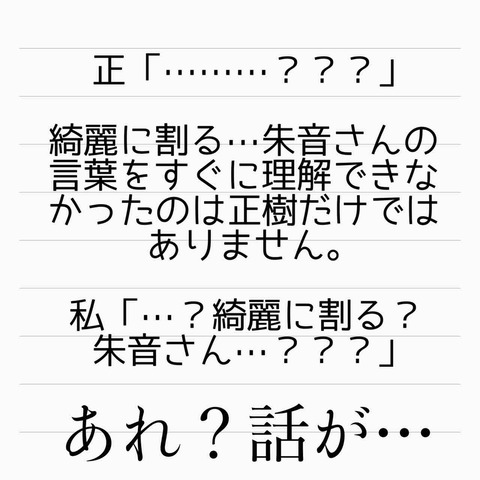 正「………？？？」
綺麗に割る…朱音さんの
言葉をすぐに理解できな
かったのは正樹だけでは
ありません。
私「…？綺麗に割る？
朱音さん…？？？」
あれ？話が…